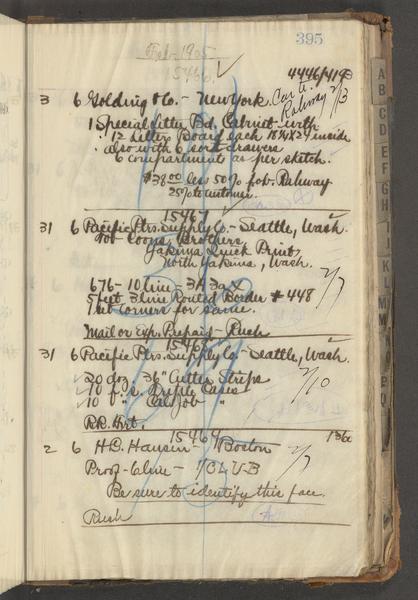 395
Feb 1905
15466
4446/419
3 6 Golding & Co. - New York. Car a. Rahway 2/3
1 Special Letter Bd. Cabinet with
12 Letter Boards each 18¼x24 inside
also with 6 sort drawers
6 compartments as per sketch.
$38.00 less 50% f.o.b. Rahway
25% to customer.
15467
31 6 Pacific Ptrs. Supply Co. - Seattle, Wash.
Brothers
Yakima Quick Print
North Yakima, Wash. 2/7
676 - 10 line - 3A 3a x
5 feet 3 line Routed Border # 448
1 set corners for same.
Mail or Exp. Prepaid - Rush
15468
31 6 Pacific Ptrs. Supply Co. - Seattle, Wash.
20 doz. 36" Cutter Strips 2/10
10 f.s. Triple Cases
10 " Cal Job "
R.R. Frt.
15469
2 6 H.C. Hansen - Boston 2/7
Proof - 6 line - 1/C L U B
Be sure to identify this face.
Rush
A
B
C
D
E
F
G
H
I
J
K
L
M